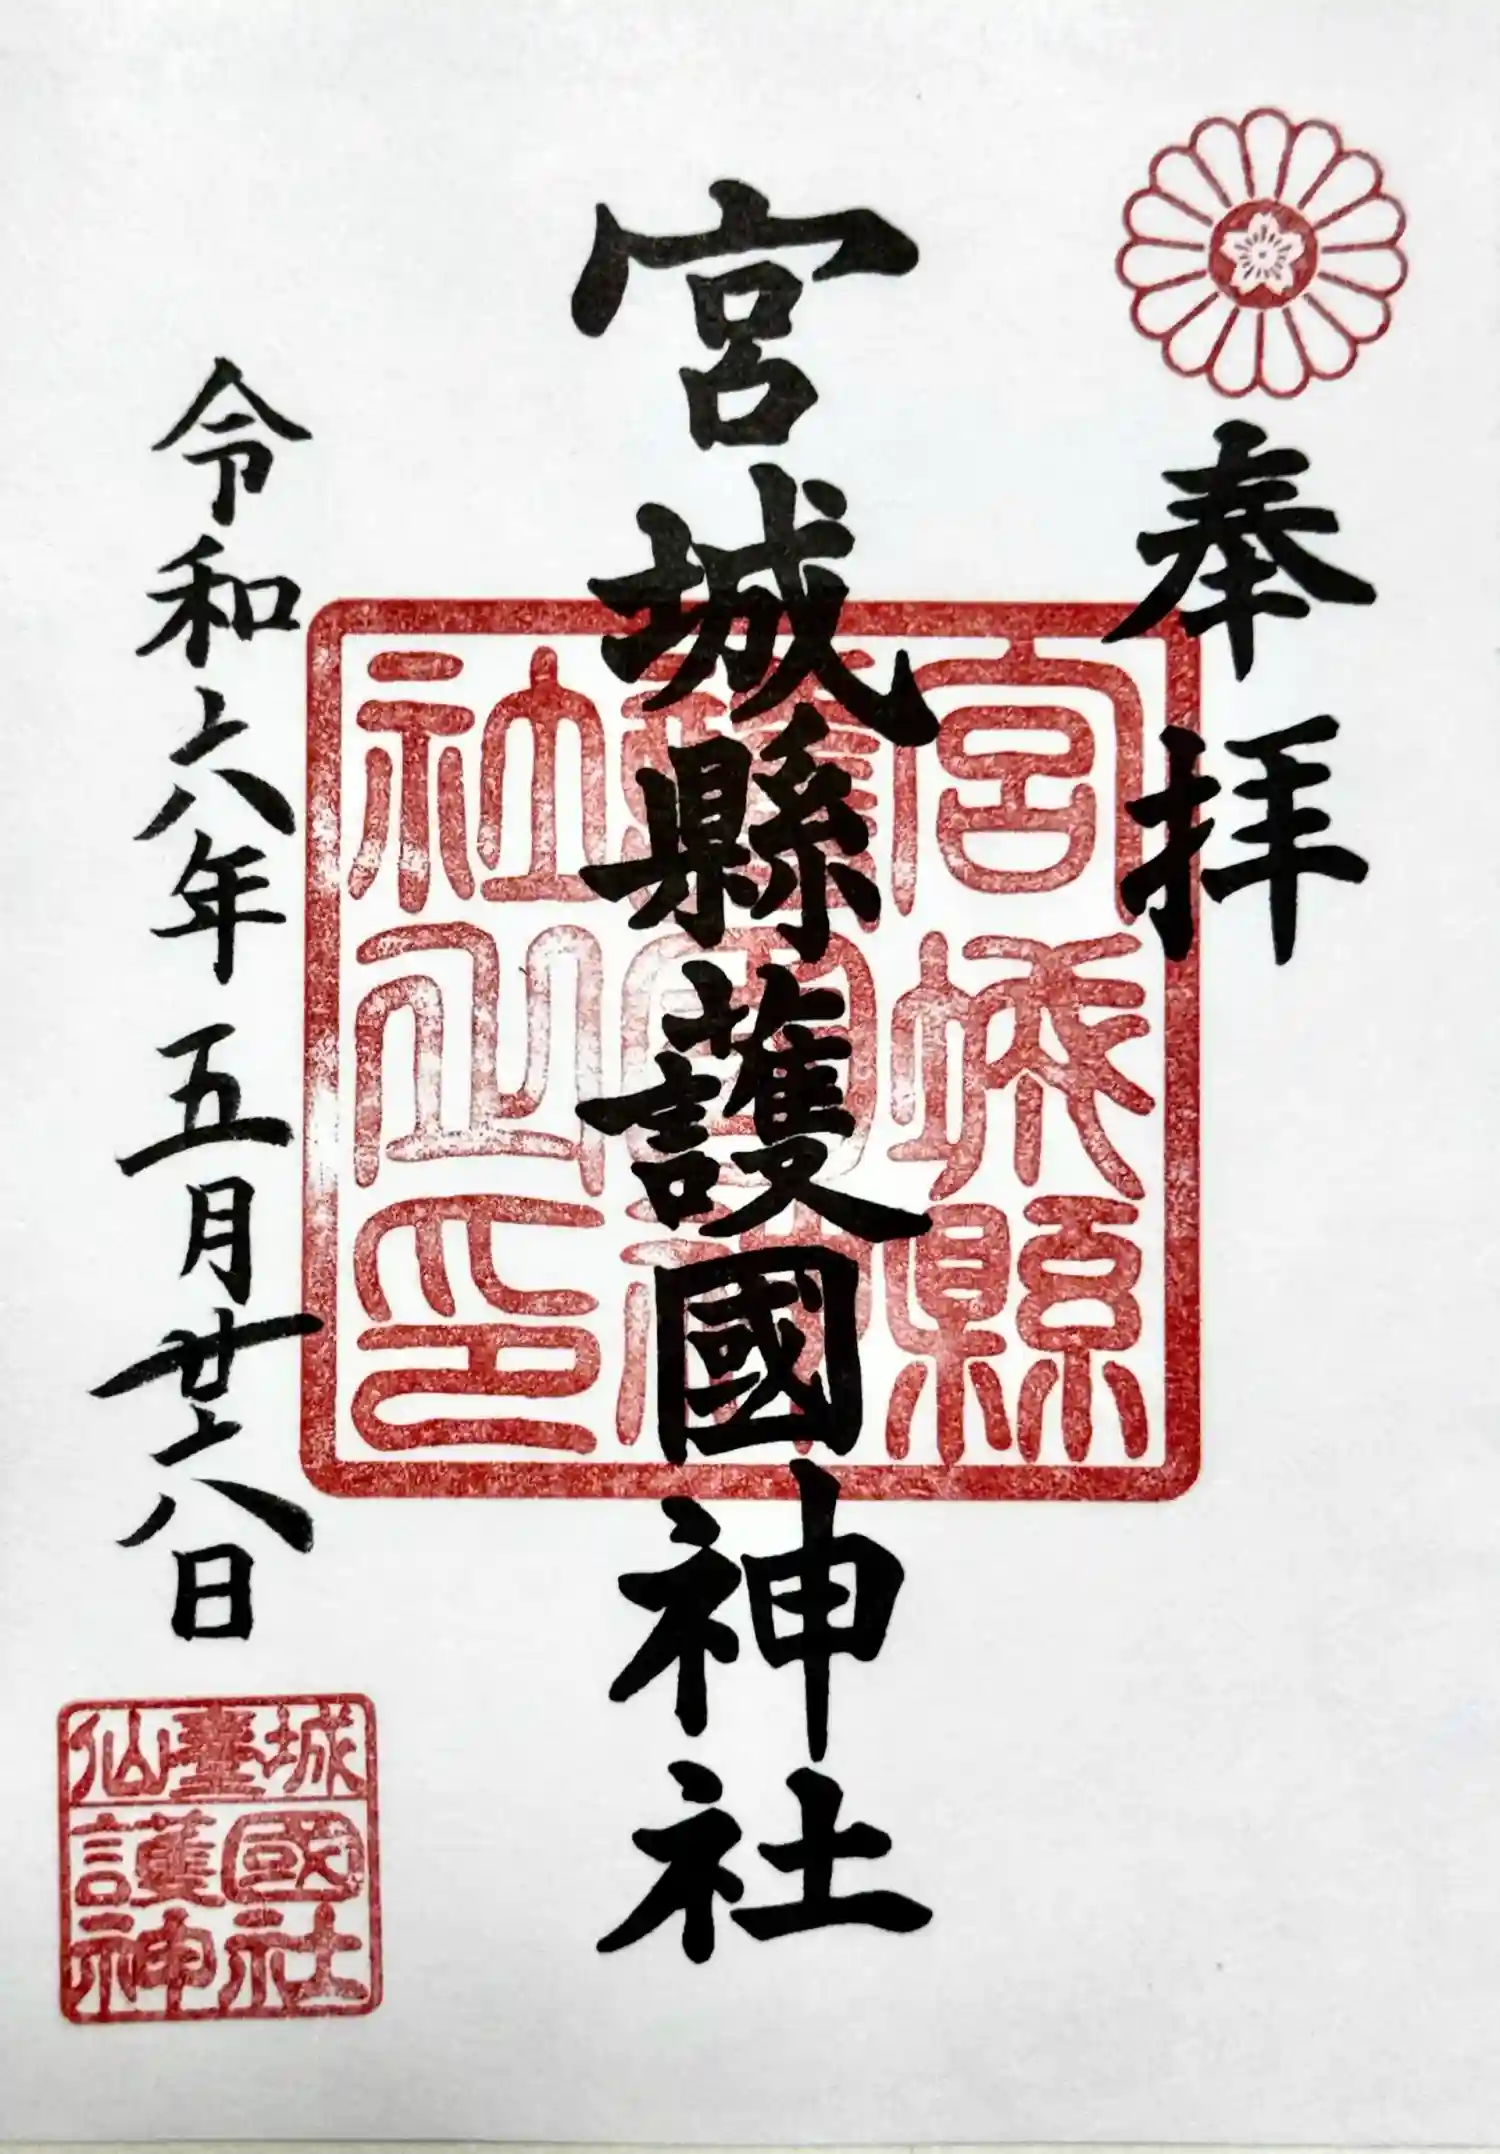 奉拝
宮城縣護國神社
宮城縣
護國神
社之印
令和六年五月廿六日
仙臺城
護國
神社